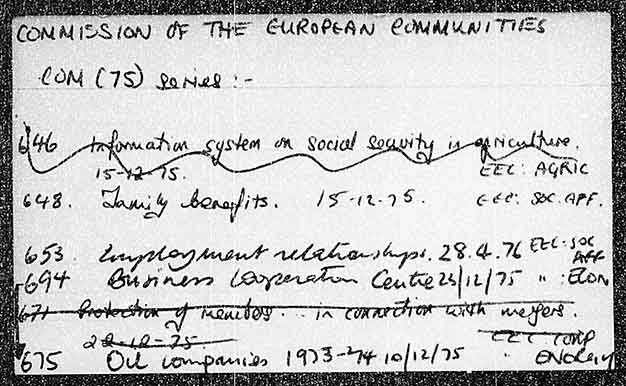 COMMISSION OF THE EUROPEAN COMMUNITIES
COM (75) series :-
646 Information system on social security in agriculture.
15-12-75. EEC: AGRIC
648. Family benefits. 15-12-75. EEC: SOC. AFF.
653. Employment relationships. 28.4.76 EEC: SOC AFF
694 Business Cooperation Centre 23/12/75 " : ECON
671 Protection of members... in connection with mergers.
22-12-75 EEC CORP
675 Oil companies 1973-74 10/12/75 " ENERGY